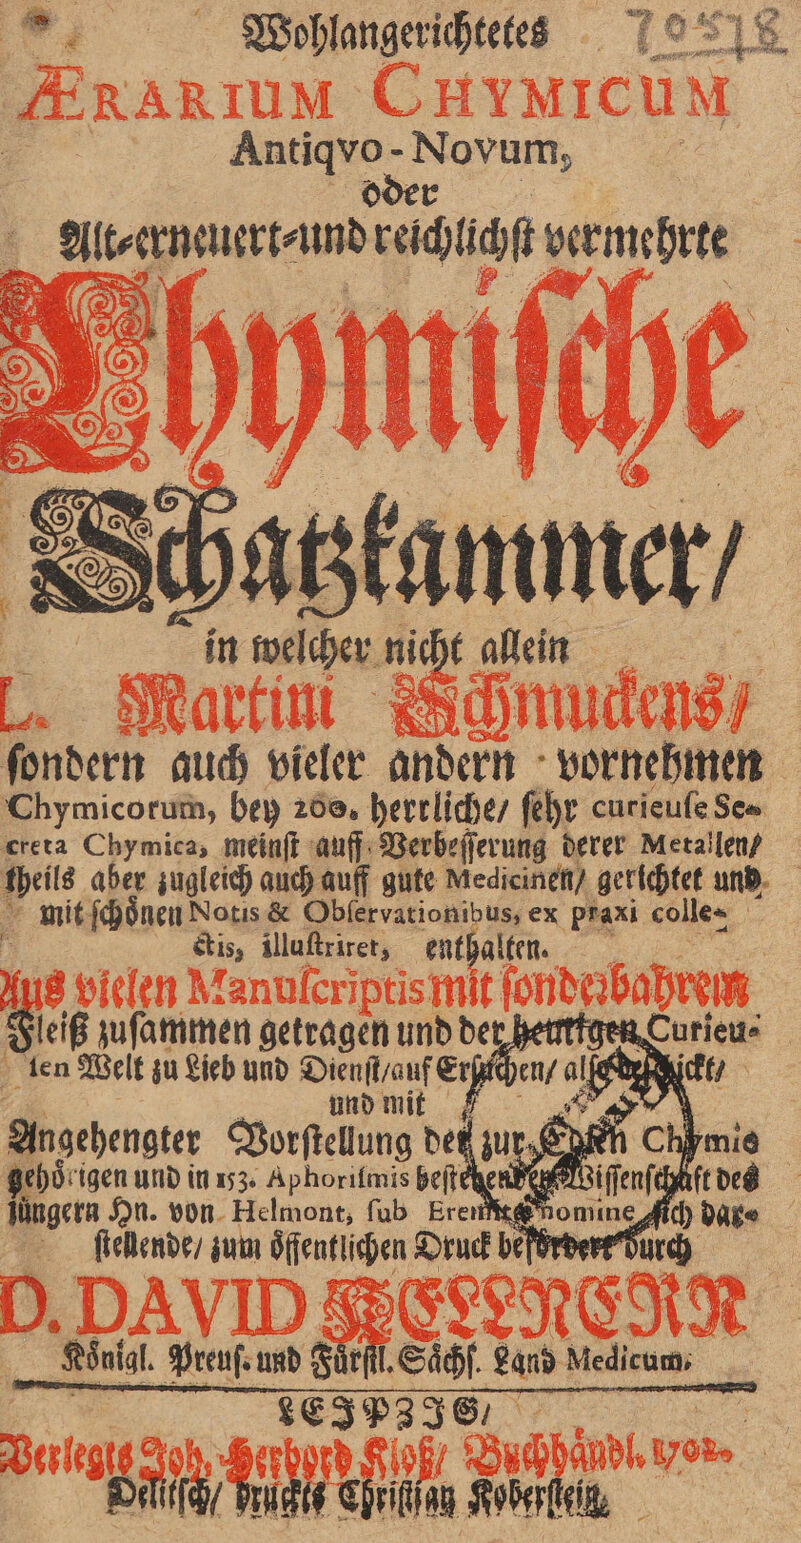 Wohlangerichtetes 70518
ÆRARIUM CHYMICUM
Antiqvo-Novum,
oder
Alt-erneuert-und reichlichst vermehrte
Chymische
Schatzkammer/
in welcher nicht allein
L. Martini Schmuckens/
sondern auch vieler andern vornehmen
Chymicorum, bey 200. herrliche/ sehr curieuse Se-
creta Chymica, meinst auff Verbesserung derer Metallen/
theils aber zugleich auch auff gute Medicinen/ gerichtet und
mit schönen Notis & Observationibus, ex praxi colle-
ctis, illustriret, enthalten.
Aus vielen Manuscriptis mit sonderbahrem
Fleiß zusammen getragen und der heutigen Curieu-
sen Welt zu Lieb und Dienst/auf
und mit
Angehengter Vorstellung der zur Edlen Chymie
gehörigen und in 153. Aphorismis bestehenden Wissenschafft des
jüngern Hn. von Helmont, sub nomine sich dar-
stellende/ zum öffentlichen Druck befördert durch
D. DAVID KELLNERN
Königl. Preus. und Fürstl. Sächs. Land Medicum.
LEJPZJG/
Verlegts Joh. Herbord Kloß/ Buchhändl. 1702.
Delitsch/ druckts Christian Koberstein.